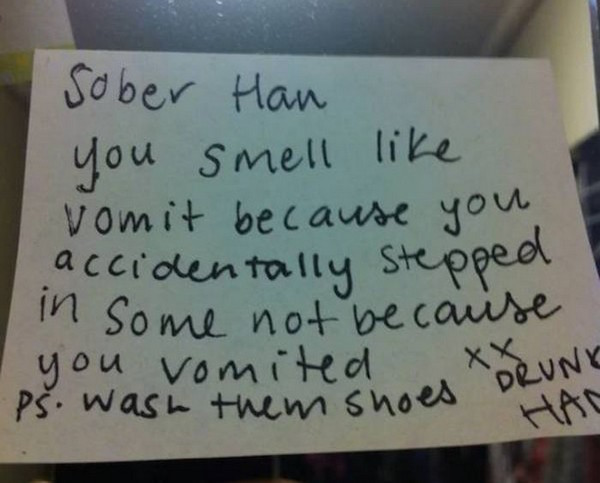 Sober Han
you smell like
vomit because you
accidentally stepped
in some not because
you vomited xx
PS. wash them shoes DRUNK
HAN